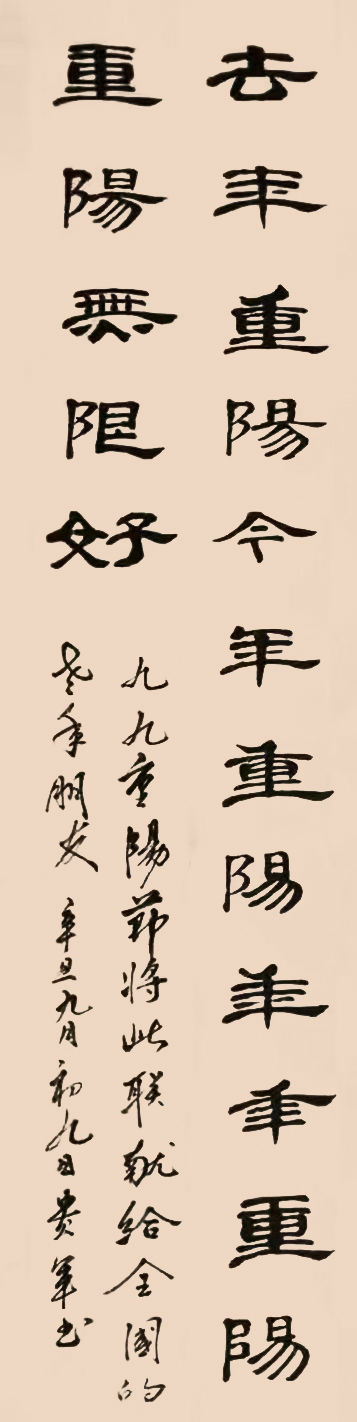 去年重陽今年重陽年年重陽
重陽無限好
九九重陽節將此联献给全國的
老年朋友 辛丑九月初九日贵军书